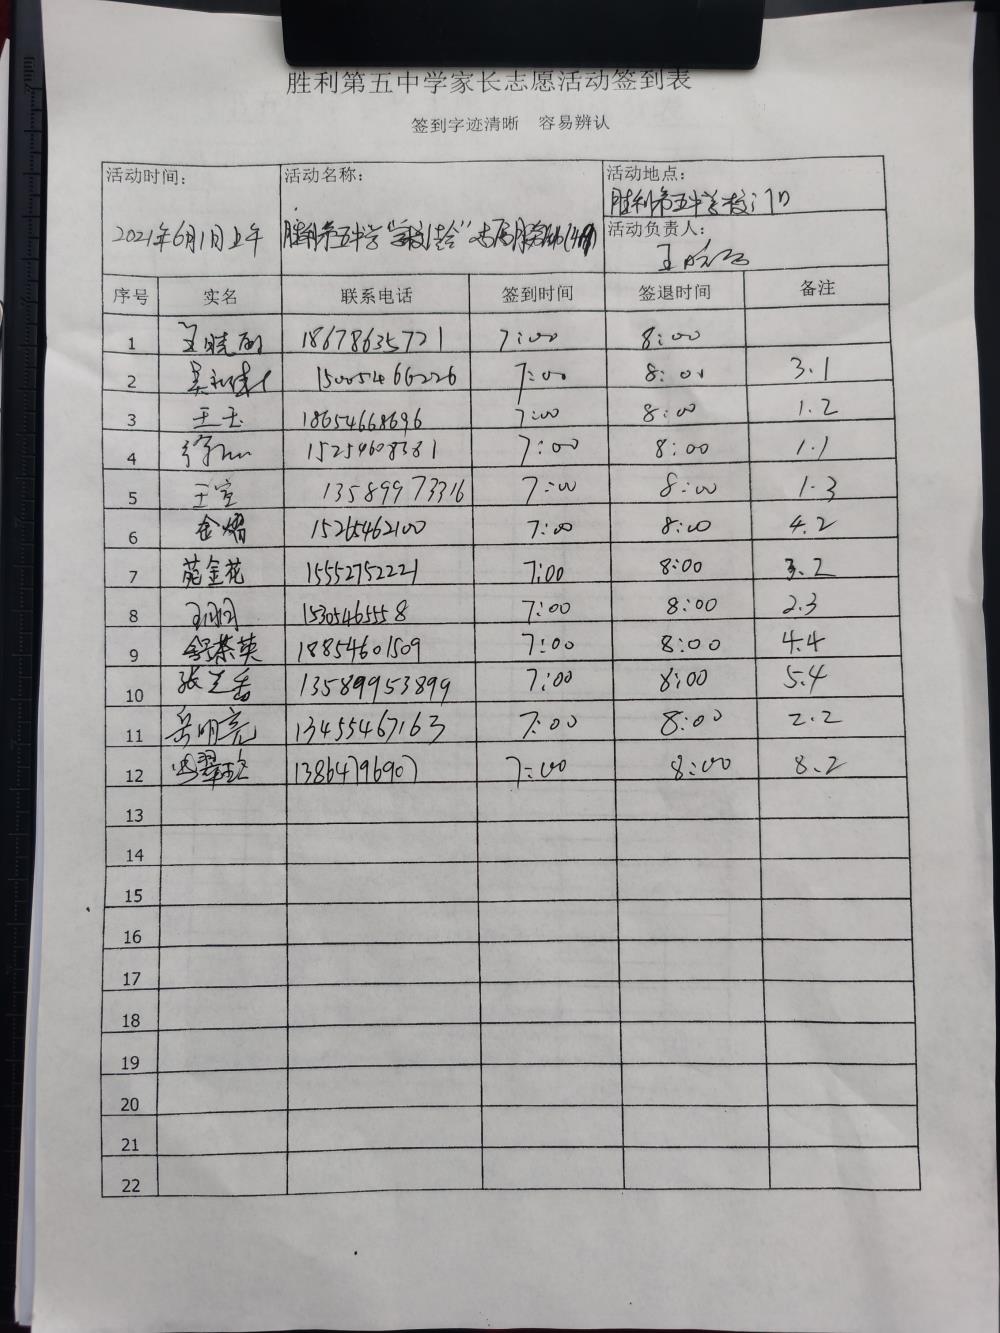 胜利第五中学家长志愿活动签到表
签到字迹清晰 容易辨认
活动时间: 活动名称: 活动地点:
胜利第五中学校门口
2021年6月1日上午 胜利第五中学 活动负责人:
序号 实名 联系电话 签到时间 签退时间 备注
1 王晓丽 18678635721 7:00 8:00
2 15005466226 7:00 8:00 3.1
3 王玉 18654668696 7:00 8:00 1.2
4 15254608381 7:00 8:00 1.1
5 王宣 13589973316 7:00 8:00 1.3
6 金熠 15265462100 7:00 8:00 4.2
7 苑金花 15552752221 7:00 8:00 3.2
8 15305465558 7:00 8:00 2.3
9 舒荣英 18854601509 7:00 8:00 4.4
10 张兰香 13589953899 7:00 8:00 5.4
11 岳明亮 13455467163 7:00 8:00 2.2
12 13864796907 7:00 8:00 8.2
13
14
15
16
17
18
19
20
21
22